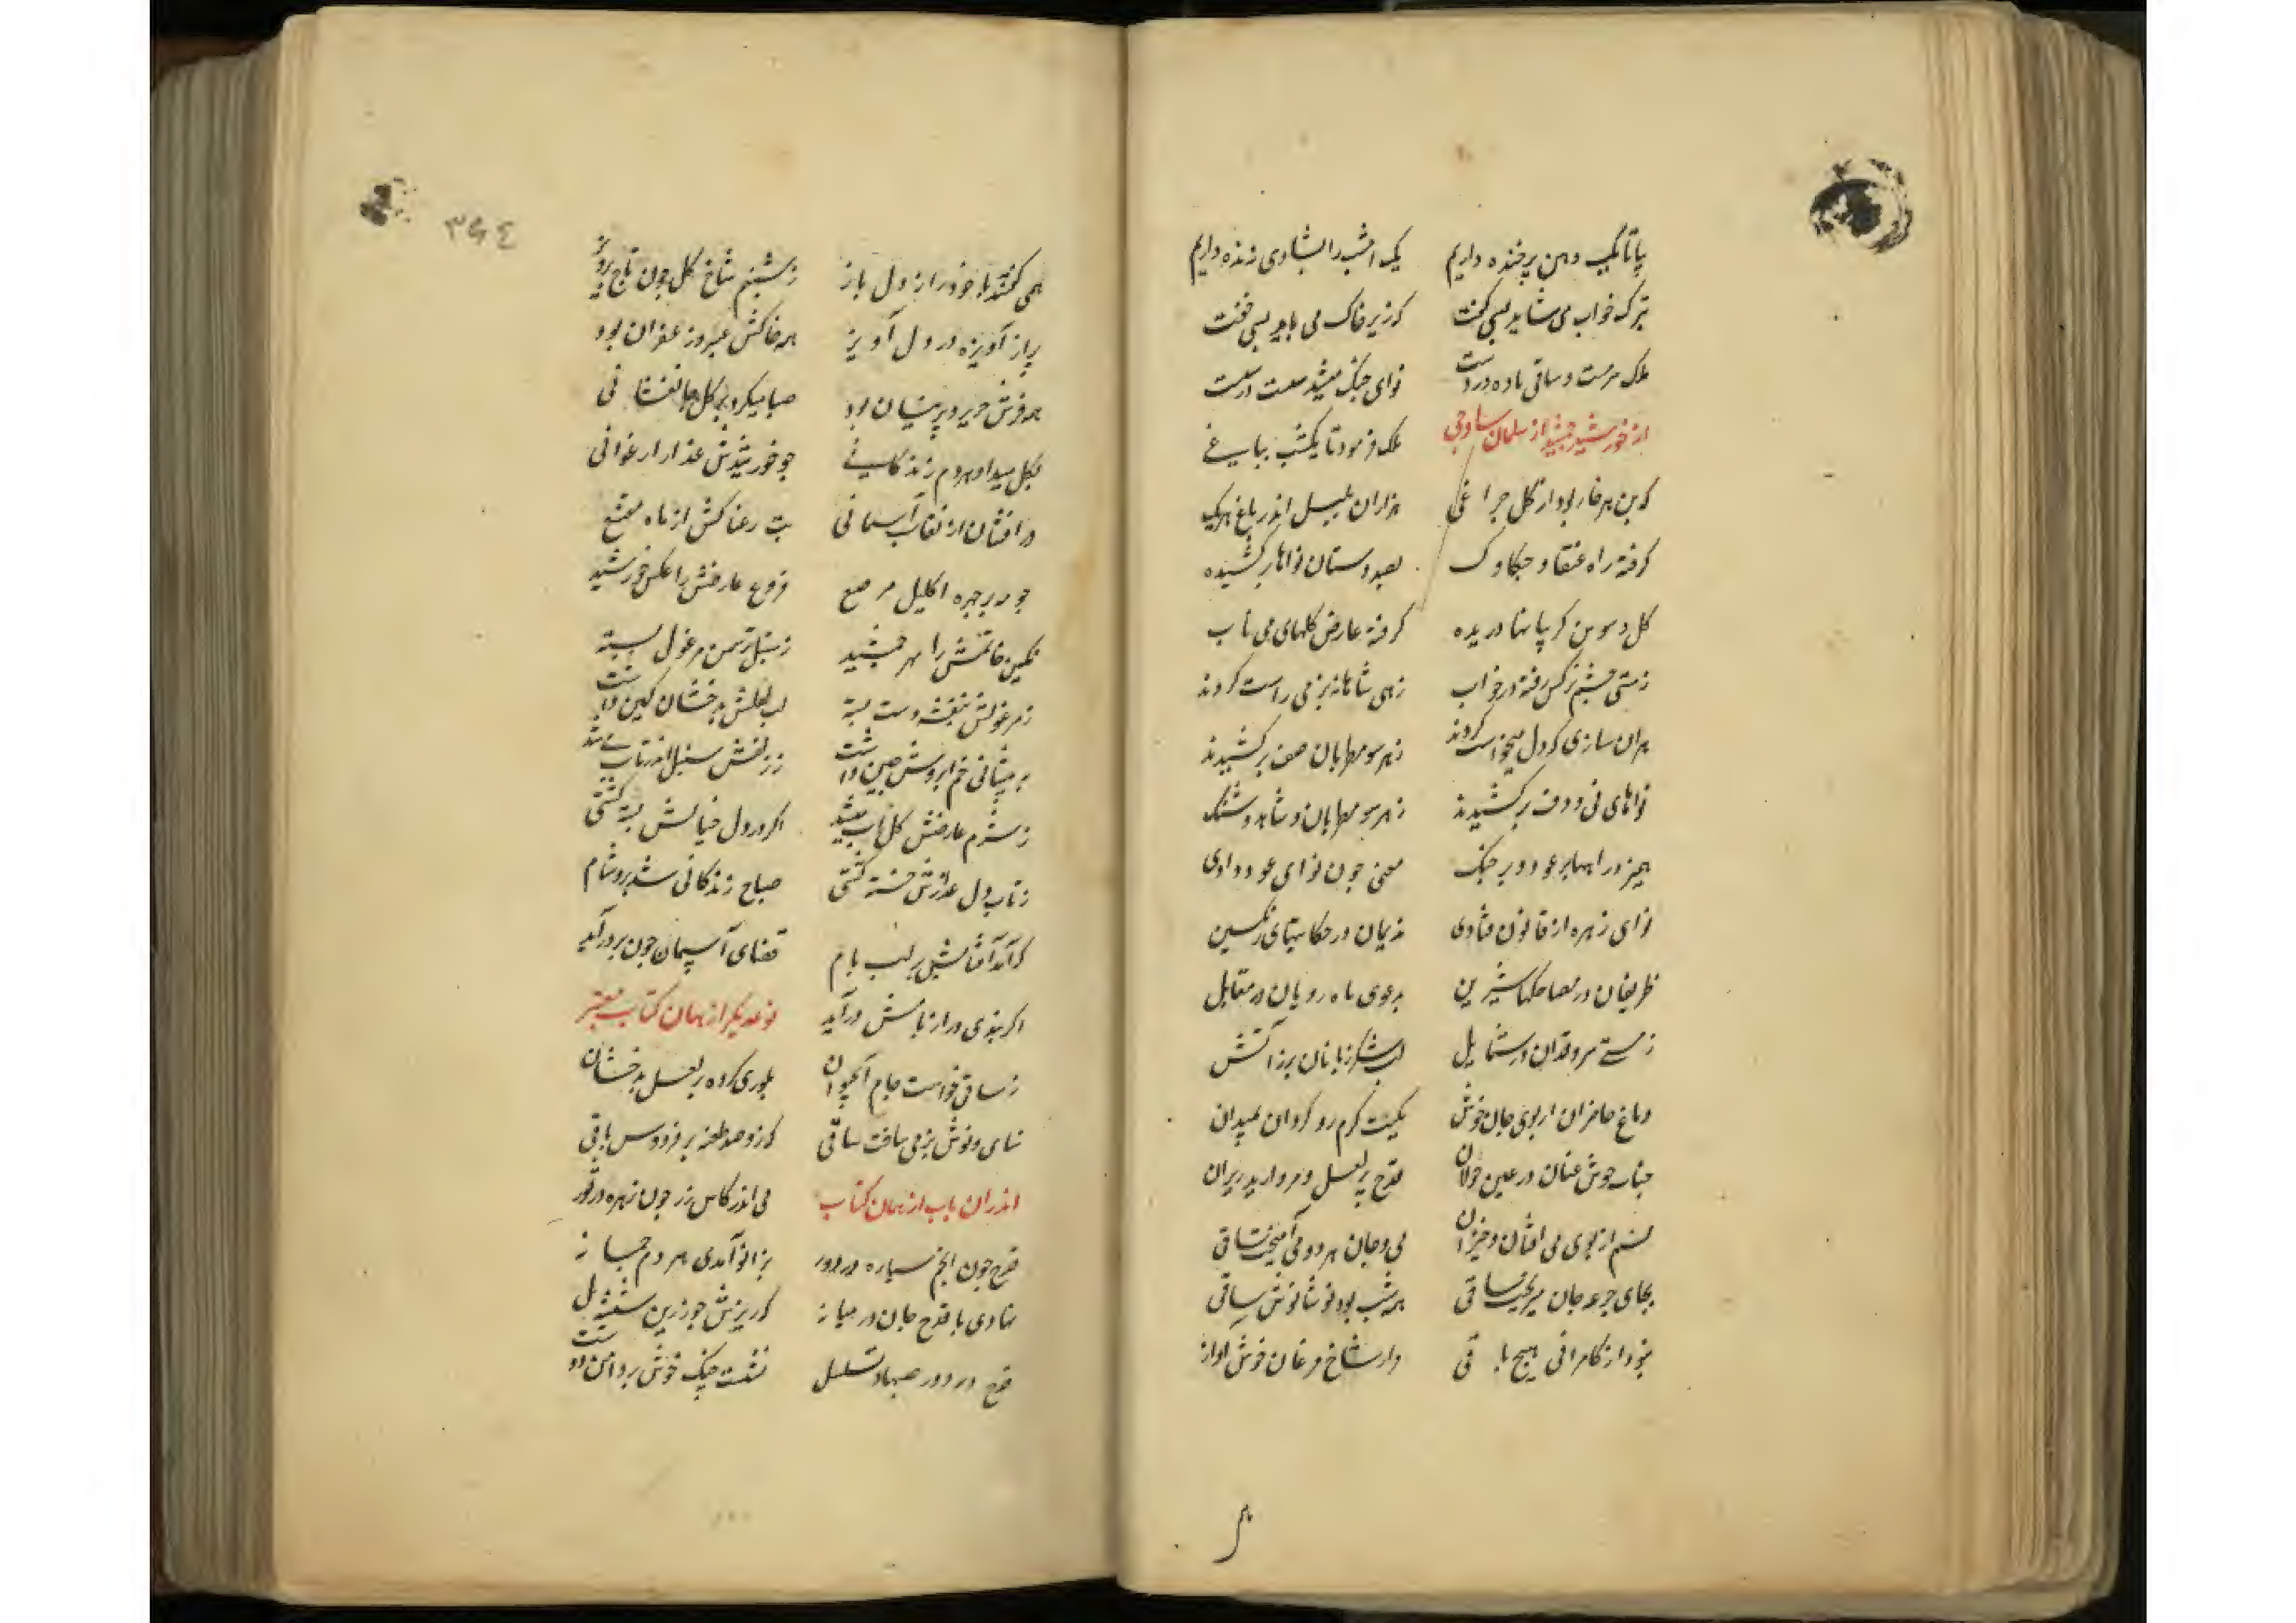 بیا تا یک دهن پرخنده داریم یک امشب را بشادی زنده داریم
بترک خواب می شاید بسی گفت که زیر خاک می باید بسی خفت
ملک سرمست و ساقی باده در دست نوای چنگ میشد شست در شست
از خورشید جمشید از سلمان ساوجی ملک فرمود تا یکشب بباغی
که بن هر خار بود از گل چراغی هزاران بلبل اندر باغ هریک
گرفته راه عنقا و چکاوک بصد دستان نواها برکشیده
گل و سوسن گریبانها دریده گرفته عارض گلهای می تاب
ز مستی چشم نرگس رفته در خواب زهی شاهانه بزمی راست کردند
بدان سازی که دل میخواست کردند ز هر سو مطربان صف برکشیدند
نواهای نی و دف برکشیدند ز هر سو مطربان و شاهد و شنگ
همیزد راهها بر عود و بر چنگ مغنی چون نوای عود دادی
نوای زهره از قانون فتادی ندیمان در حکایتهای رنگین
ظریفان در مضاحکهای شیرین بدعوی ماه رویان در مقابل
ز مستی سروقدان در شمایل لب شکرزبانان پر ز آتش
دماغ حاضران از بوی جان خوش کمیت گرم رو گردان بمیدان
حباب خوش عنان در عین جولان قدح پر لعل و مروارید ریزان
نسیم از بوی می افتان و خیزان می و جان هر دو می آمیخت ساقی
بجای جرعه جان میریخت ساقی همه شب بود نوشانوش ساقی
نبود از کامرانی هیچ باقی و از شاخ مرغان خوش آواز
همی گفتند با خود راز دل باز ز شبنم شاخ گل چون تاج پرویز
پر از آویزه در دل آویز همه خاکش عبیر و زعفران بود
همه فرش حریر و پرنیان بود صبا میکرد بر گل جانفشانی
بگل میداد هر دم زندگانی چو خورشیدش عذار ارغوانی
درافشان از نقاب آسمانی بت رعنا کش از ماه مقنع
چو مه بر چهره اکلیل مرصع فروغ عارضش را عکس خورشید
نگین خاتمش را مهر جمشید ز سنبل بر سمن مرغول بسته
ز مرغولش بنفشه دسته بسته لب لعلش بدخشان نگین داشت
به پیشانی خم ابروش چین داشت ز زلفش سنبل اندر تاب می شد
ز شرم عارضش گل آب میشد اگر در دل خیالش بسته گشتی
ز تاب دل عذارش خسته گشتی صباح زندگانی شد برو شام
که آمد آفتابش بر لب بام قضای آسمان چون بر در آید
اگر بندی در از بامش درآید نوعدیگر از همان کتاب معتبر
ز ساقی خواست جام آب حیوان بلوری کرده پر لعل بدخشان
بنای و نوش بزمی ساخت ساقی کزو صد طعنه بر فردوس باقی
اندران باب از همان کتاب می اندر کاس زر چون زهره در ثور
قدح چون انجم سیاره در دور بزانو آمدی هر دم چمانه
نهادی با قدح جان در میانه که ریزش چو زرین شیشه مل
قدح در دور صهبا در تسلسل نشست چنگ خوش بر دامن دوست
۳۶۴